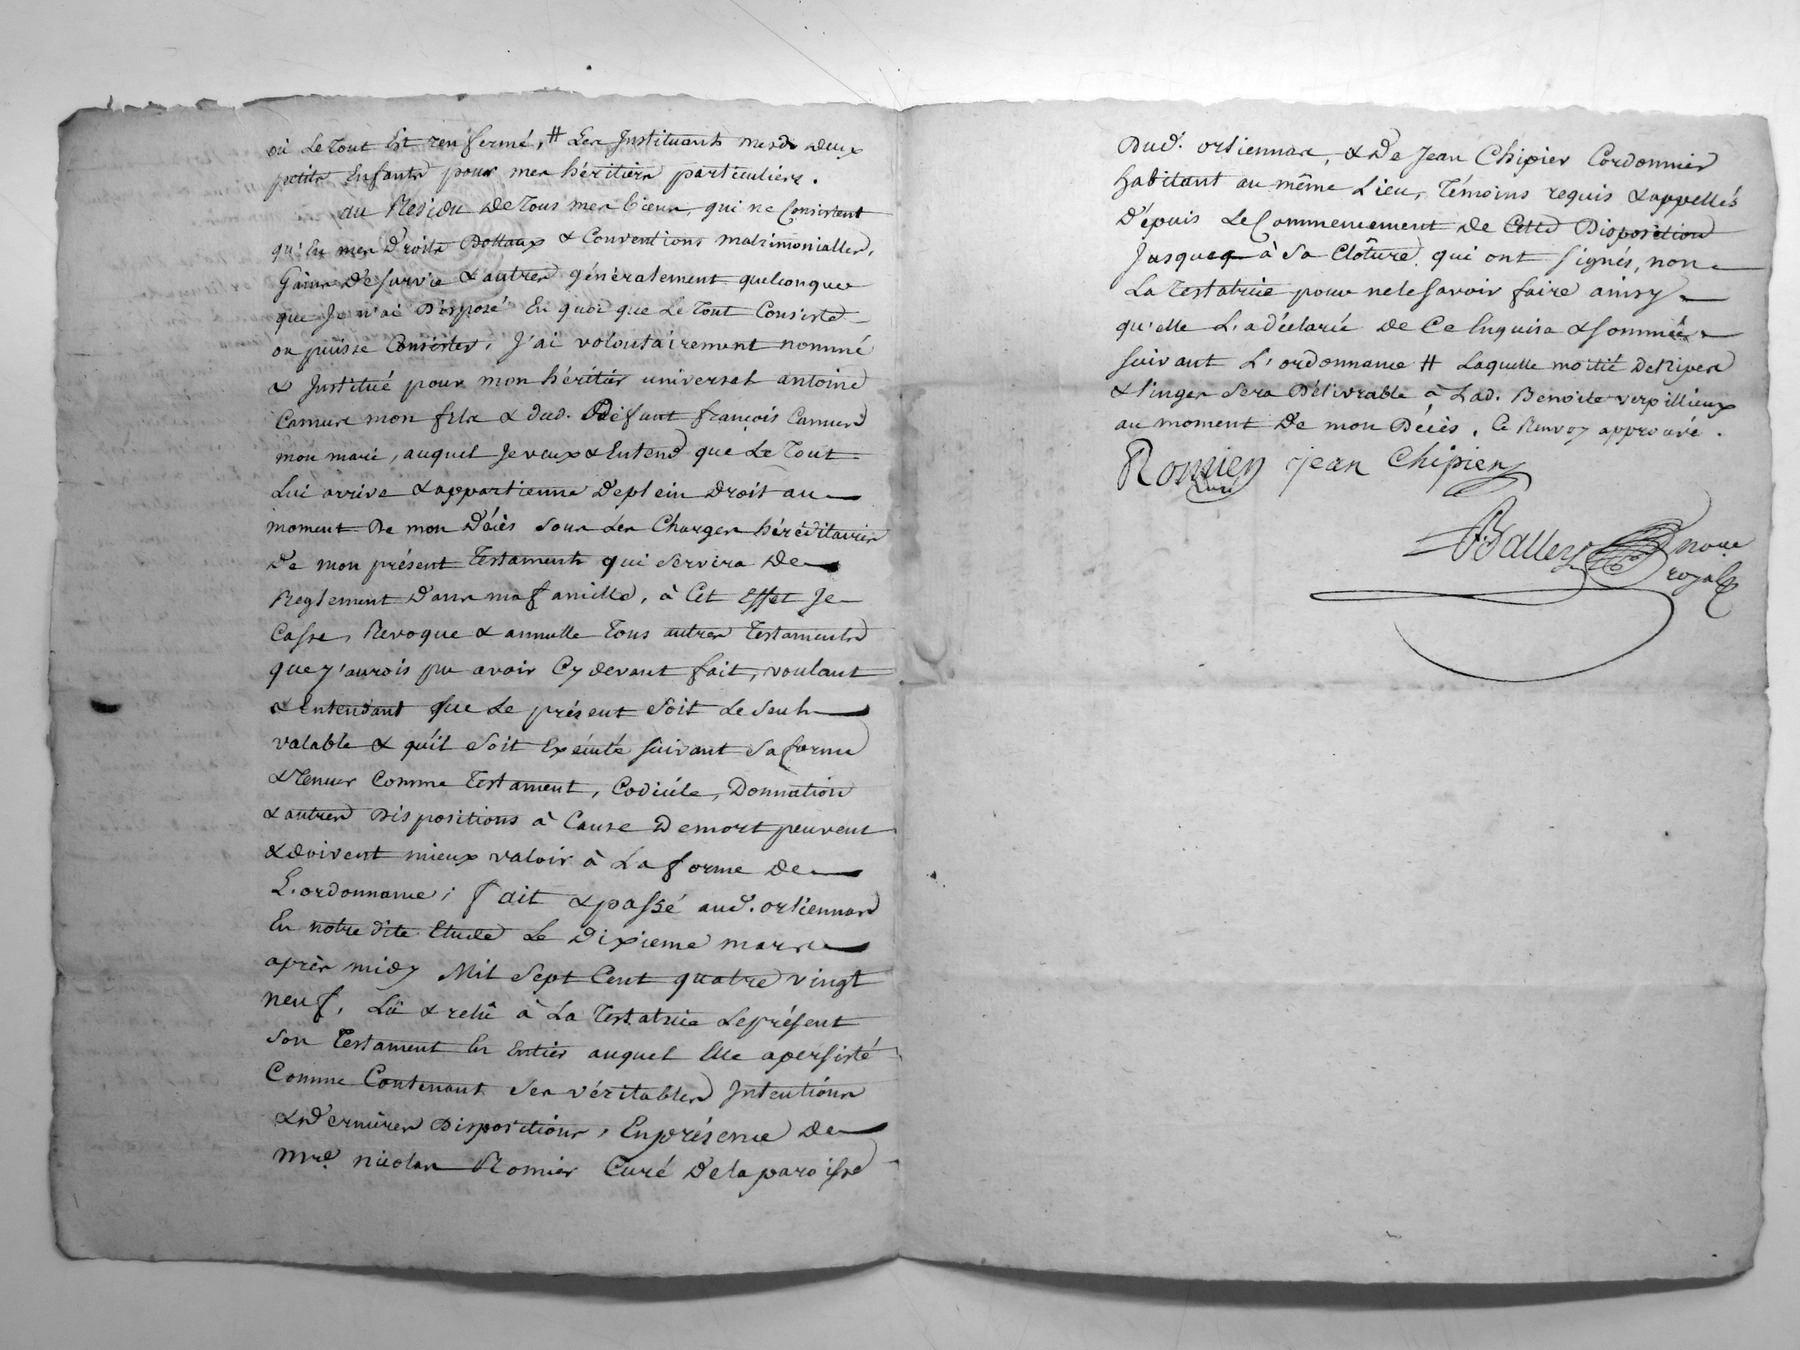 où le tout est renfermé, # les Instituants mesds deux
petits Enfants pour mes héritiers particuliers.
au Residu de tous mes biens, qui ne Consistent
qu'En mes Droits Dottaux & Conventions matrimonialles,
Gains de survie & autres généralement quelconques
que Je n'ai Disposé En quoi que le tout Consiste
ou puisse Consister, J'ai volontairement nommé
& Institué pour mon héritier universel antoine
Camus mon fils & dud. Défunt françois Camus
mon mari, auquel Je veux & Entend que le tout
lui arrive & appartienne de plein droit au
moment De mon Décès sous les Charges héréditaires
De mon présent testament qui servira De
Reglement Dans ma famille, à Cet Effet Je
Casse, Revoque & annulle tous autres testaments
que j'aurois pu avoir Cy devant fait, voulant
& Entendant que le présent soit le seul
valable & qu'il soit Exécuté suivant sa forme
& tenus Comme testament, Codicile, Donnation
& autres Dispositions à Cause De mort peuvent
& doivent mieux valoir à la forme de
L'ordonnance; fait & passé aud. ortiennas
En notre dite Etude le Dixieme mars
après midy Mil Sept Cent quatre vingt
neuf, Lû & relû à la testatrice le présent
son testament En Entier auquel Elle a persisté
Comme Contenant ses véritables Intentions
& dernières Dispositions, En présence de
Mre. nicolas Romier Curé De la paroisse
Dud. ortiennas, & De Jean Chipier Cordonnier
habitant au même Lieu, témoins requis & appellés
Dépuis le Commencement de Cette Disposition
Jusques à Sa Clôture, qui ont signés, non
la testatrice pour ne le savoir faire ainsy
qu'elle l'a déclaré de Ce Enquise & sommée
suivant L'ordonnance # laquelle moitié de
& linges sera Délivrable à lad. Benoite verpillieux
au moment de mon Décès. Ce Renvoy approuvé.
Romier jean Chipier
Curé
Balley noire
royal